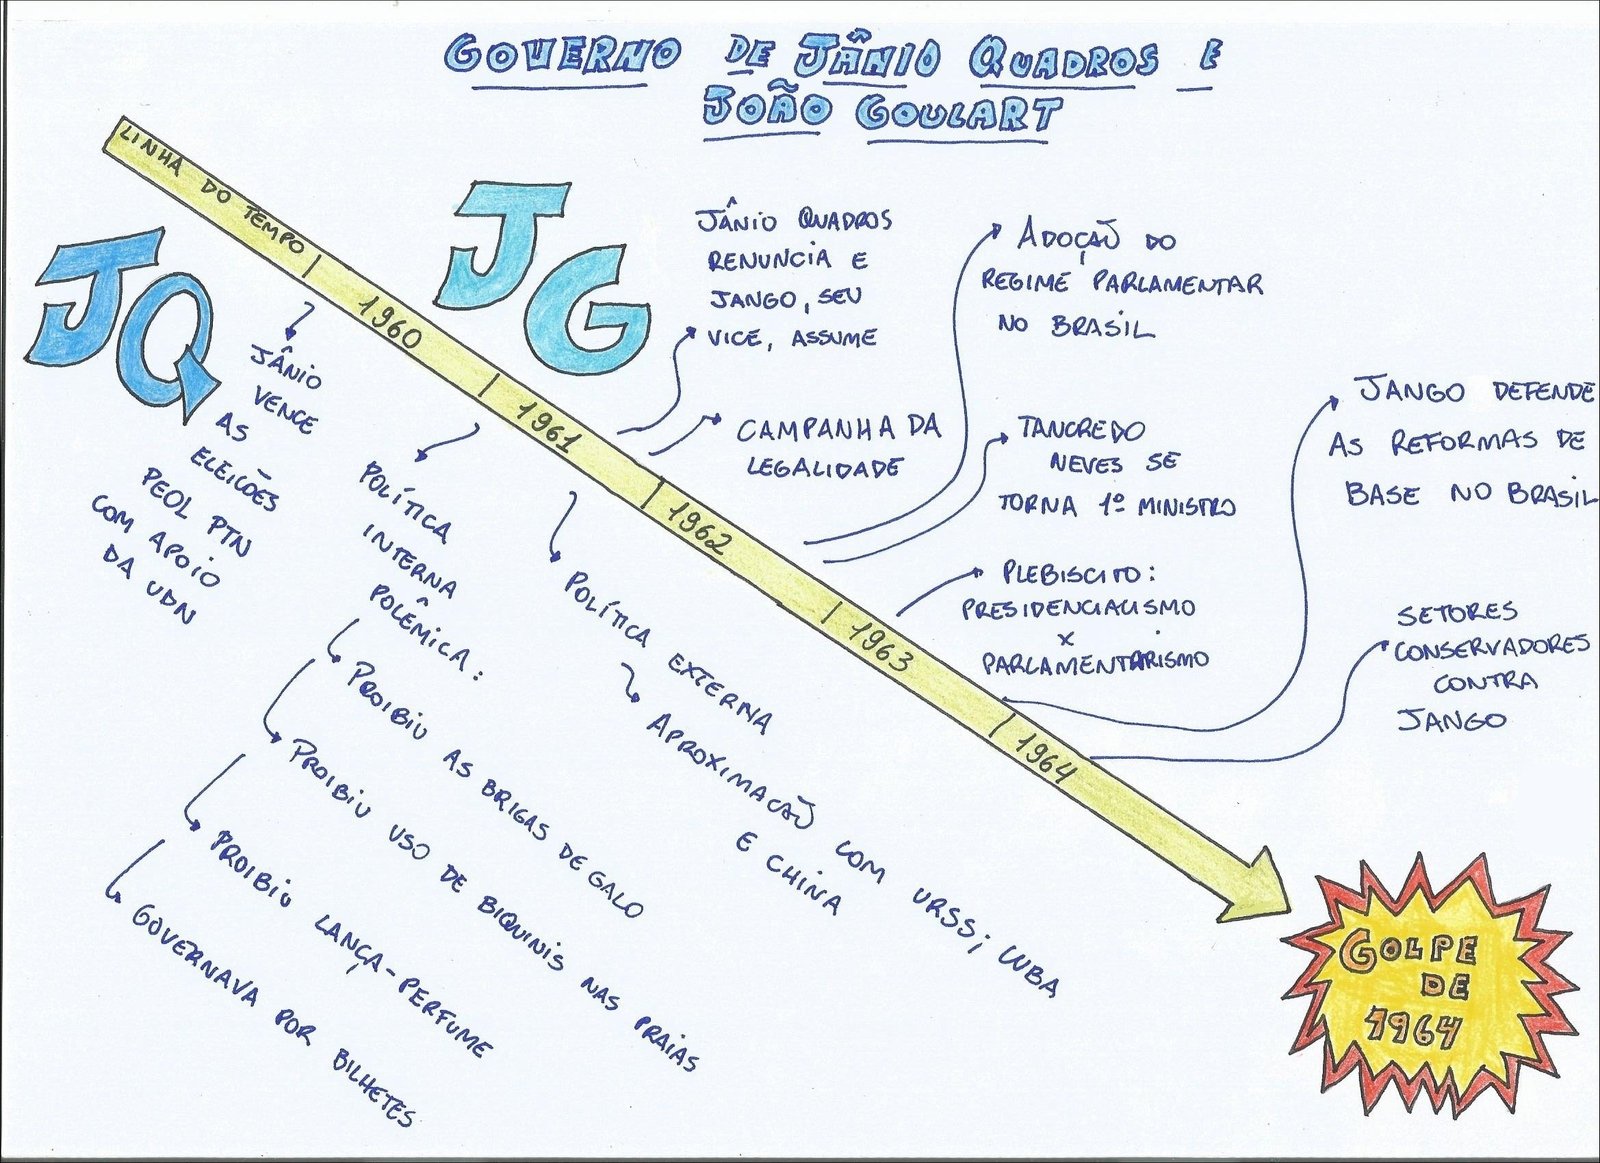 GOVERNO DE JÂNIO QUADROS E
JOÃO GOULART
LINHA DO TEMPO
1960
1961
1962
1963
1964
JQ
JG
JÂNIO
VENCE
AS
ELEIÇÕES
PEOL PTN
COM APOIO
DA UDN
POLÍTICA
INTERNA
POLÊMICA:
PROIBIU AS BRIGAS DE GALO
PROIBIU USO DE BIQUINIS NAS PRAIAS
PROIBIU LANÇA-PERFUME
GOVERNAVA POR BILHETES
POLÍTICA EXTERNA
APROXIMAÇÃO COM URSS; CUBA
E CHINA
JÂNIO QUADROS
RENUNCIA E
JANGO, SEU
VICE, ASSUME
CAMPANHA DA
LEGALIDADE
ADOÇÃO DO
REGIME PARLAMENTAR
NO BRASIL
TANCREDO
NEVES SE
TORNA 1º MINISTRO
PLEBISCITO:
PRESIDENCIALISMO
X
PARLAMENTARISMO
JANGO DEFENDE
AS REFORMAS DE
BASE NO BRASIL
SETORES
CONSERVADORES
CONTRA
JANGO
GOLPE
DE
1964